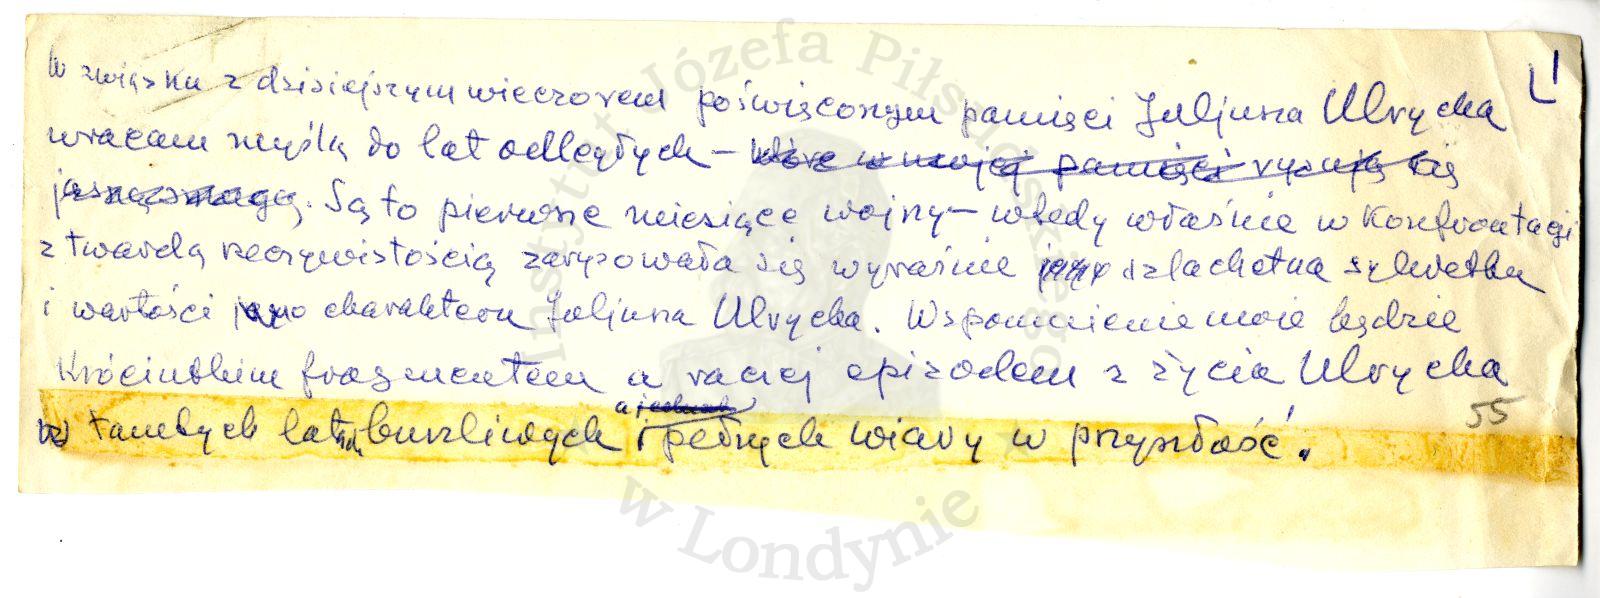 W związku z dzisiejszym wieczorem poświęconym pamięci Juljusza Ulrycha
wracam myślą do lat odległych – które w mojej pamięci rysują się
Są to pierwsze miesiące wojny – wtedy właśnie w konfrontacji
z twardą rzeczywistością zarysowała się wyraźnie szlachetna sylwetka
i wartości charakteru Juljusza Ulrycha. Wspomnienie moje będzie
króciutkim fragmentem a raczej epizodem z życia Ulrycha
55
a jednak
z tamtych lat burzliwych i pełnych wiary w przyszłość.
1
Instytut Józefa Piłsudskiego
w Londynie